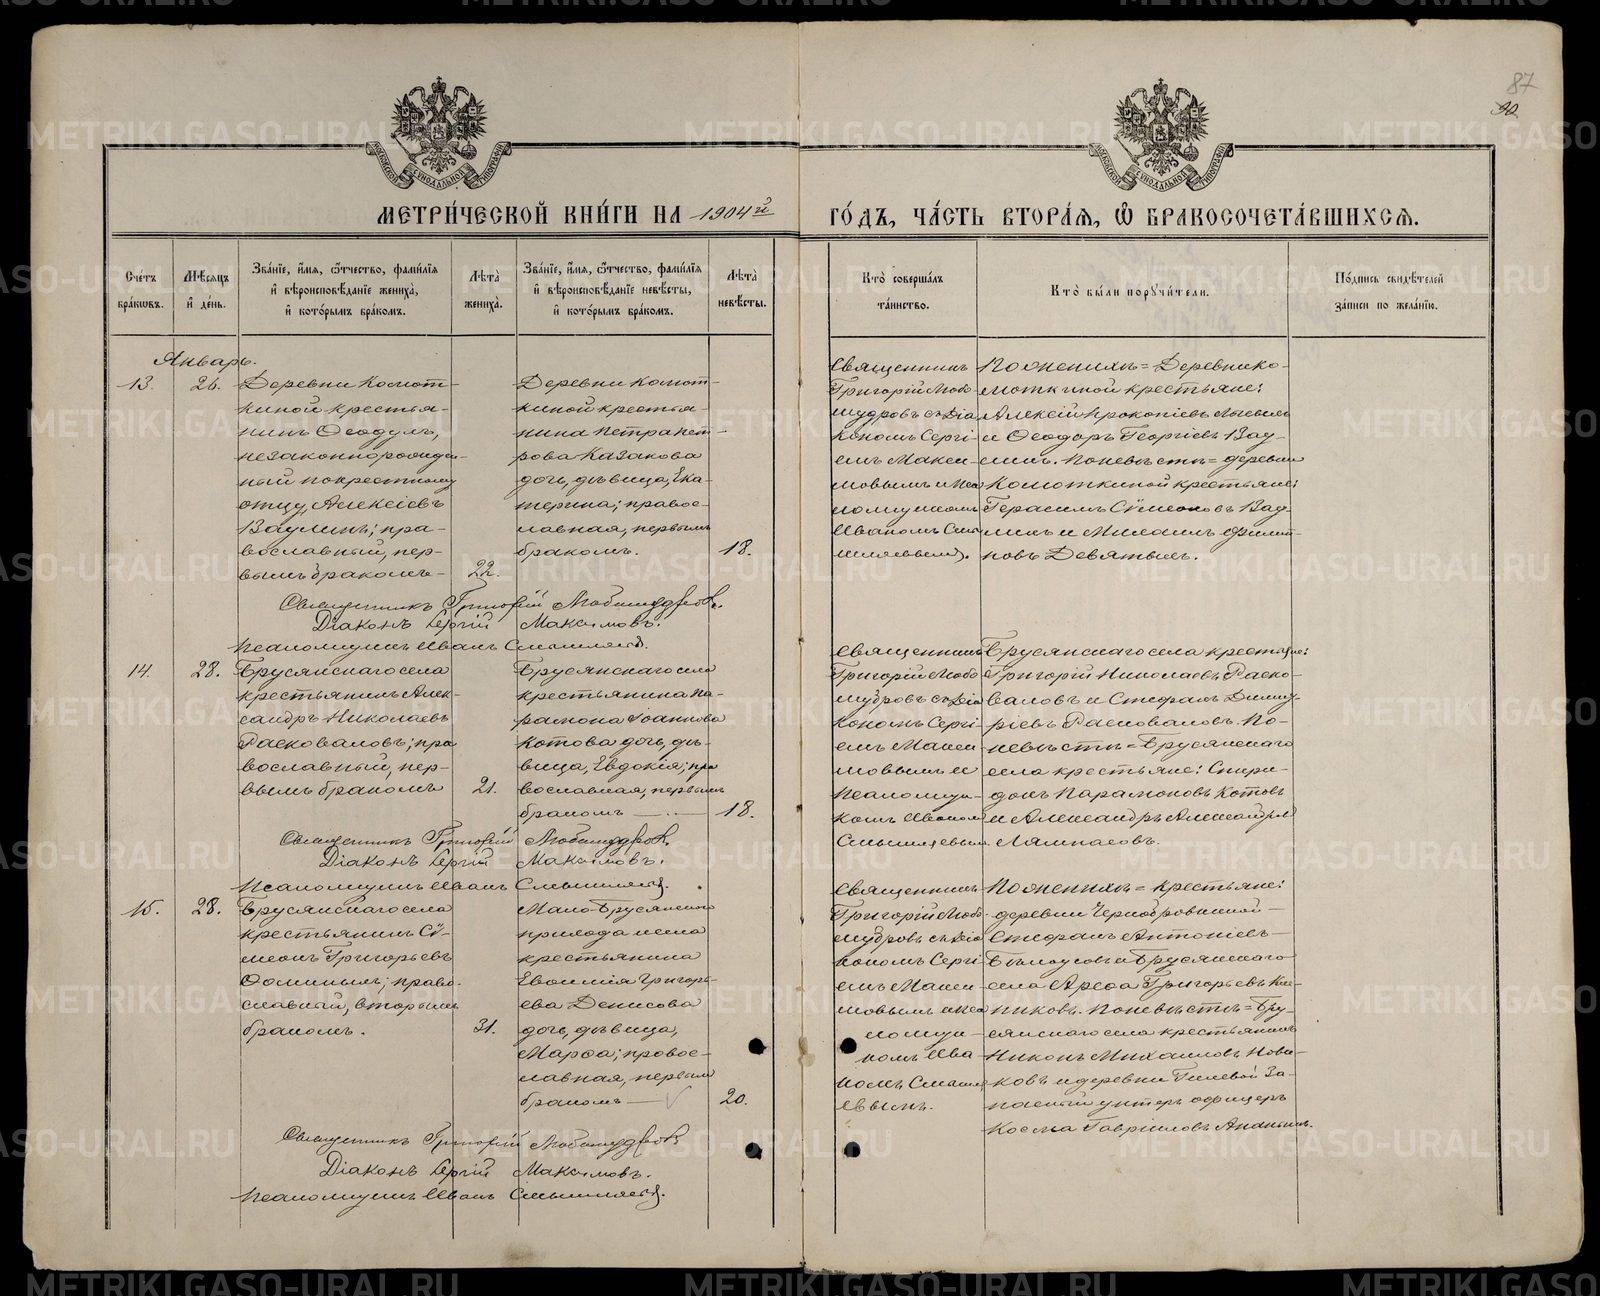 87
90
МЕТРИ́ЧЕСКОЙ КНИ́ГИ НА 1904й ГО́ДЪ, ЧА́СТЬ ВТОРА́Ѧ, Ѽ БРАКОСОЧЕТА́ВШИХСѦ.
Сче́тъ
бра́ковъ.
Мѣ́сяцъ
и҆ де́нь.
Зва́нїе, и҆́мя, ѻ҆́тчество, фами́лїя
и҆ вѣроисповѣ́данїе жениха̀,
и҆ кото́рымъ бра́комъ.
Лѣ́та̀
жениха̀.
Зва́нїе, и҆́мя, ѻ҆́тчество, фами́лїя
и҆ вѣроисповѣ́данїе невѣ́сты,
и҆ кото́рымъ бра́комъ.
Лѣ́та̀
невѣ́сты.
Кто̀ соверша́лъ
та́инство.
Кто̀ бы́ли порꙋчи́тели.
По́дпись свидѣ́телей
за́писи по жела́нїю.
Январь.
13.
26.
Деревни Комот-
киной крестья-
нинъ Ѳеодулъ,
незаконнорожден-
ный по крестному
отцу, Алексіевъ
Ваулинъ; пра-
вославный, пер-
вымъ бракомъ
22.
Деревни Комот-
киной крестья-
нина Петра Пет-
рова Казакова
дочь, дѣвица, Ека-
терина; правос-
лавная, первымъ
бракомъ.
18.
Священникъ
Григорій Любо-
мудровъ съ Діа
кономъ Сергі-
емъ Макси-
мовымъ и Пса
ломщикомъ
Иваномъ Смы
шляевымъ.
По женихѣ = Деревни Ко-
моткиной крестьяне:
Алексій Прокопіевъ
и Ѳеодоръ Георгіевъ Вау-
лины. По невѣстѣ = деревни
Комоткиной крестьяне:
Герасимъ Сѵмеоновъ Вау-
линъ и Михаилъ Филип-
повъ Девятыхъ.
Священникъ Григорій Любомудровъ.
Діаконъ Сергій Максимовъ.
Псаломщикъ Иванъ Смышляевъ.
14.
28.
Брусянскаго села
крестьянинъ Алек-
сандръ Николаевъ
Расковаловъ; пра
вославный, пер-
вымъ бракомъ
21.
Брусянскаго села
крестьянина Па-
рамона Іоаннова
Котова дочь, дѣ-
вица, Евдокія; пра
вославная, первымъ
бракомъ
18.
Священникъ
Григорій Любо
мудровъ съ Діа
кономъ Сергі-
емъ Макси-
мовымъ и
Псаломщи-
комъ Иваномъ
Смышляевымъ
Брусянскаго села крестьяне:
Григорій Николаевъ Раско-
валовъ и Стефанъ Димит
ріевъ Расковаловъ. По
невѣстѣ = Брусянскаго
села крестьяне: Спири-
донъ Парамоновъ Котовъ
и Александръ Александровъ
Лямпасовъ.
Священникъ Григорій Любомудровъ.
Діаконъ Сергій Максимовъ.
Псаломщикъ Иванъ Смышляевъ.
15.
28.
Брусянскаго села
крестьянинъ Сѵ-
меонъ Григорьевъ
православный, вторымъ
бракомъ.
31.
Мало-Брусянскаго
прихода и села
крестьянина
Евѳимія Григорь-
ева Денисова
дочь, дѣвица,
Марѳа; правос-
лавная, первымъ
бракомъ
20.
Священникъ
Григорій Любо-
мудровъ съ Діа
кономъ Сергі-
емъ Макси-
мовымъ и Пса
ломщи-
комъ Ива
номъ Смышля
евымъ.
По женихѣ = крестьяне:
деревни Чернобровкиной
Стефанъ Антоніевъ
Бѣлоусовъ и Брусянскаго
села Арефа Григорьевъ
По невѣстѣ = Бру-
сянскаго села крестьянинъ
Никонъ Михаиловъ Нови-
ковъ и деревни Гилевой За-
пасный унтеръ офицеръ
Косма Гавріиловъ Ананьинъ.
Священникъ Григорій Любомудровъ
Діаконъ Сергій Максимовъ.
Псаломщикъ Иванъ Смышляевъ.
METRIKI.GASO-URAL.RU